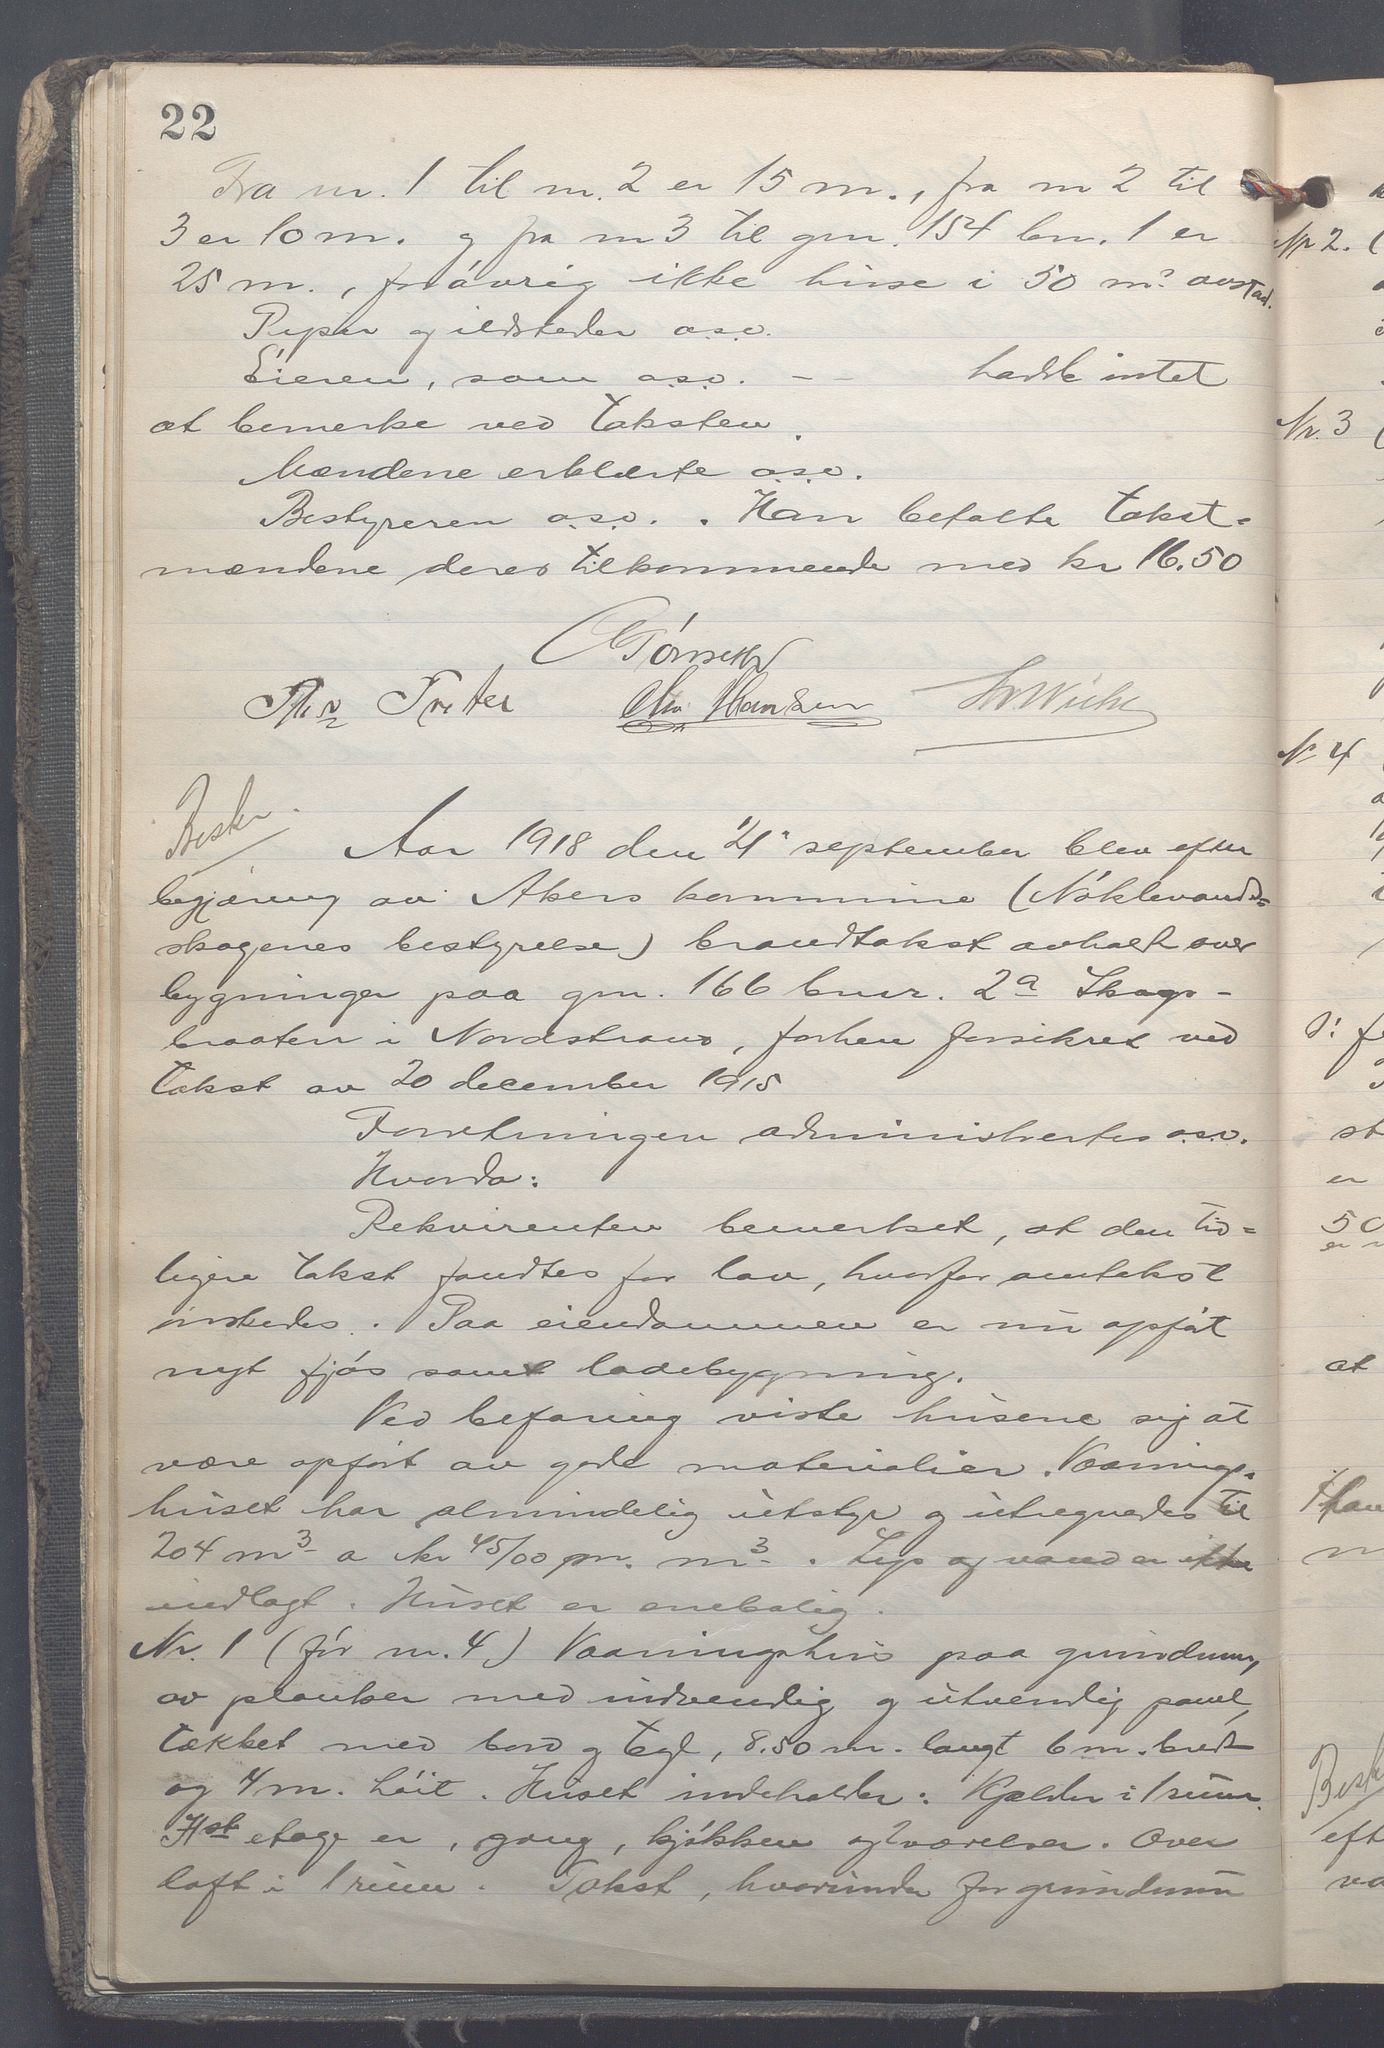 22
Fra nr. 1 til nr. 2 er 15 m., fra nr 2 til
3 er 10 m. og fra nr 3 til gnr. 154 bnr. 1 er
25 m., forøvrig ikke huse i 50 m.s avstand.
Piper og ildsteder o.s.v.
Eieren, som o.s.v. - - hadde intet
at bemerke ved taksten.
Mændene erklærte o.s.v.
Bestyreren o.s.v. . Han befalte takst-
mændene deres tilkommende med kr 16.50
Chr. Hansen
Beskr.
Aar 1918 den 21' september blev efter
begjæring av Akers kommune (Nøklevands-
skogenes bestyrelse) brandtakst avholdt over
bygninger paa gnr. 166 bnr. 2a Skogs-
braaten i Nordstrand, forhen forsikret ved
takst av 20 december 1915
Forretningen administrertes o.s.v.
Hvorda:
Rekvirenten bemerket, at den tid-
ligere takst fandtes for lav, hvorfor omtakst
ønskedes. Paa eiendommen er nu opført
nyt fjøs samt ladebygning.
Ved befaring viste husene sig at
være opført av gode materialier. Vaanings-
huset har almindelig utstyr og utregnedes til
204 m3 a kr 45/00 pr. m3. Lys og vand er ikke
indlagt. Huset er enebolig.
Nr. 1 (før nr. 4) Vaaningshus paa grundmur,
av planker med indvendig og utvendig panel,
tækket med bord og tegl, 8.50 m. langt 6 m. bredt
og 4 m. høit. Huset indeholder: Kjelder i 1 rum.
1ste etage er, gang, kjøkken og 2 værelser. Over
loft i 1 rum. Takst, hvorunder for grundmur
Nr 2.
Nr. 3
Nr 4
st
er
50
at
eft
va